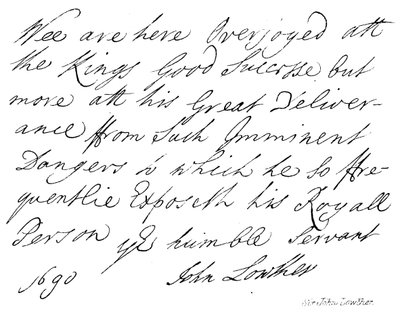 Wee are here Overjoyed att
the Kings Good Successe but
more att his Great Deliver-
ance ffrom Such Imminent
Dangers to which he so ffre-
quentlie Exposeth his Royall
Person ye humble Servant
1690 John Lowther
Sir John Lowther